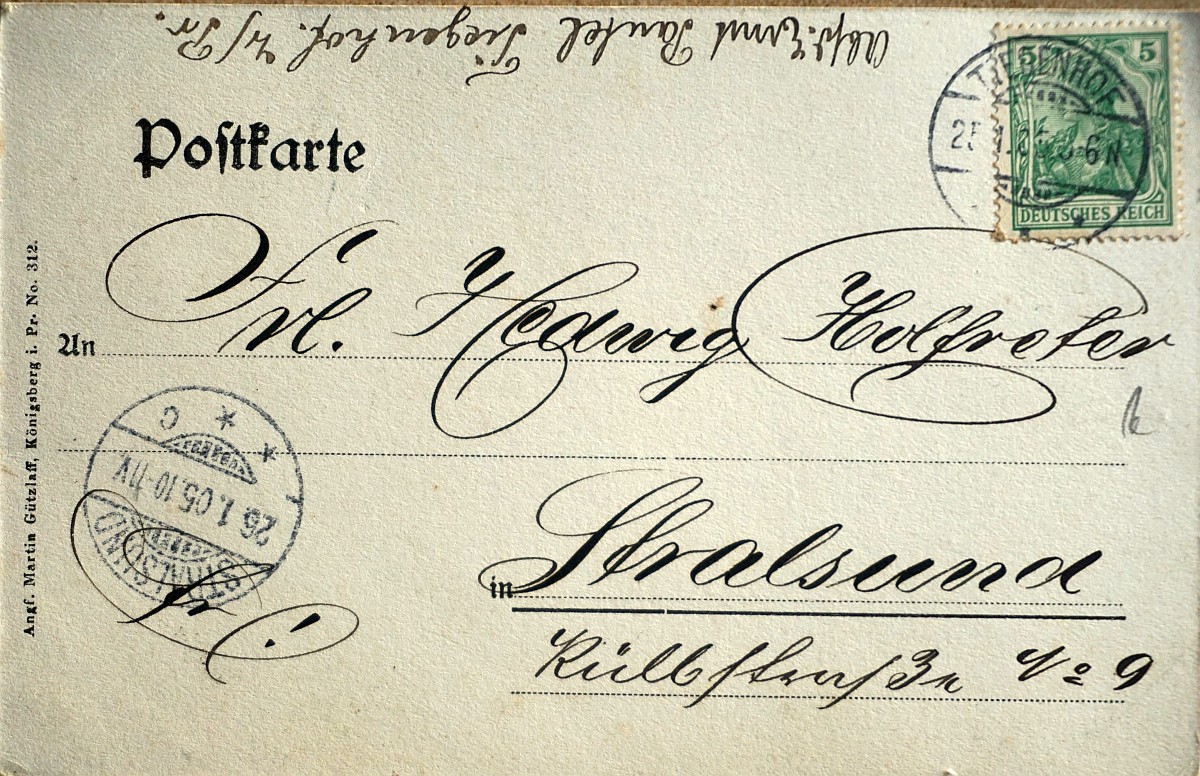 Abs: Ernst Pantel Tiegenhof. W/Pr.
5 5
TIEGENHOF
25 1.05. 5-6N
DEUTSCHES REICH
Postkarte
An Frl. Hedwig Holfreter
C
26.1.05.10-11V
STRALSUND
fr!
in Stralsund
Külbstraße No 9
Angf. Martin Gützlaff, Königsberg i. Pr. No. 312.